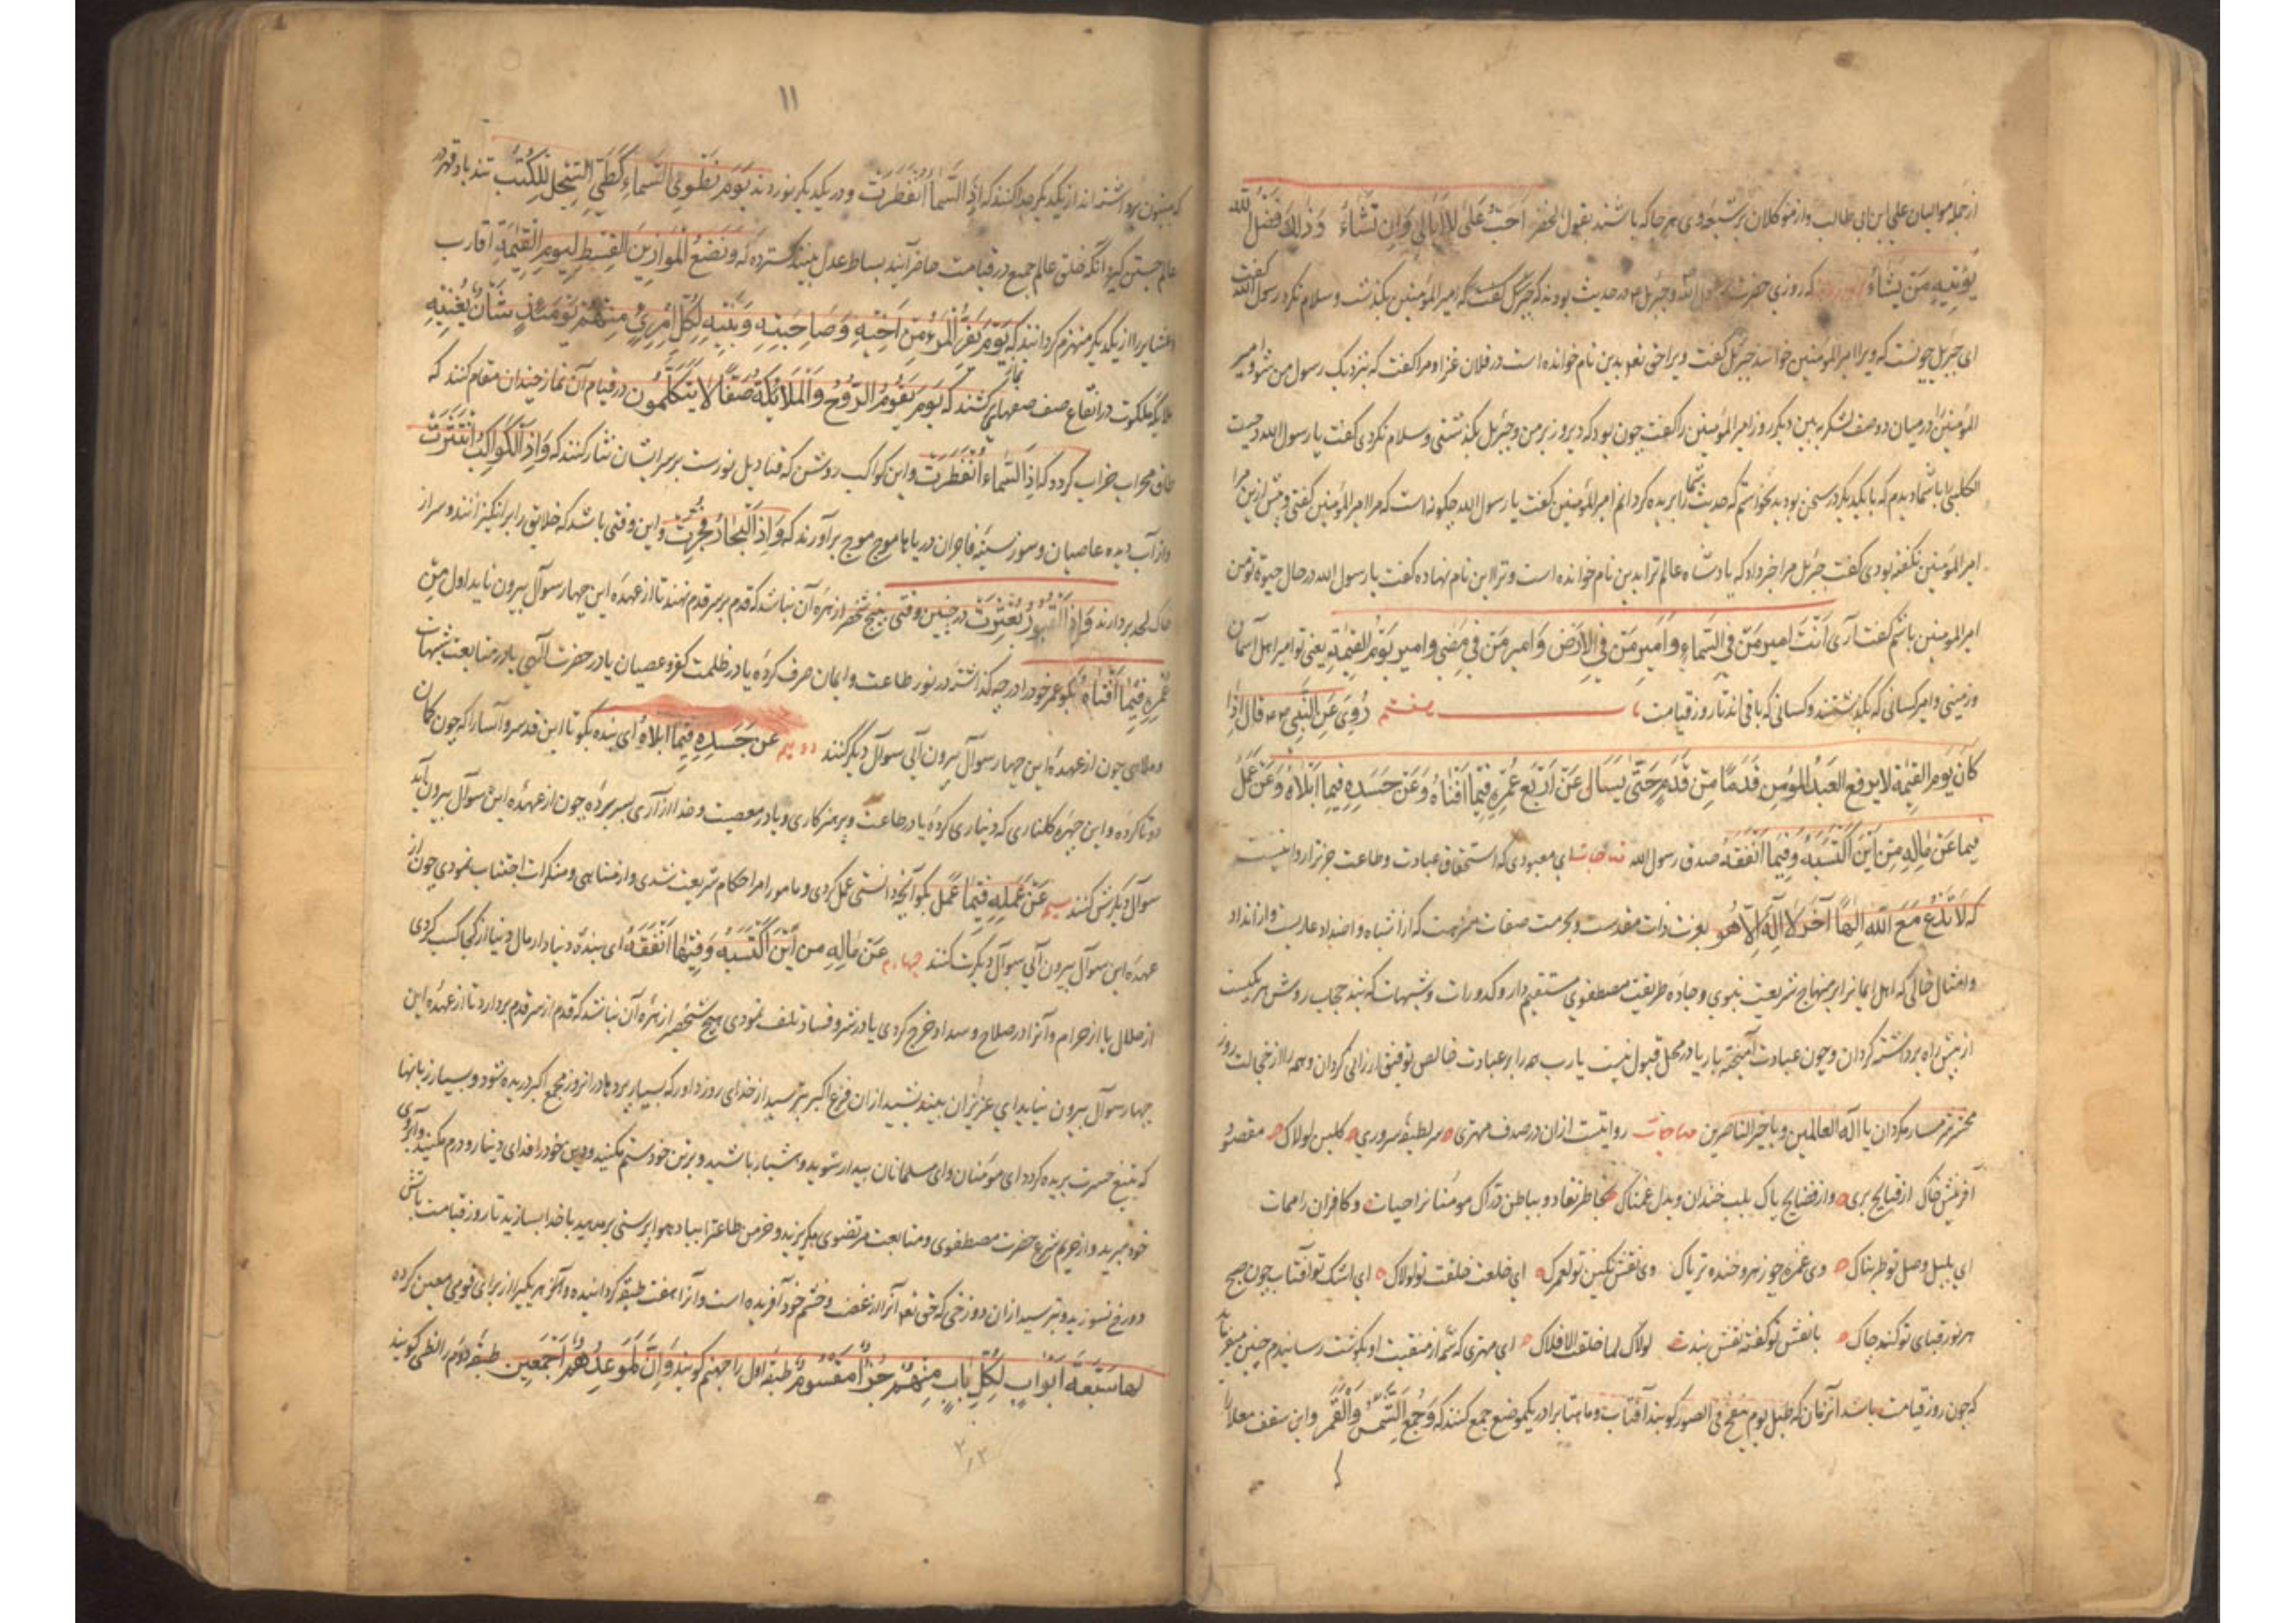 از جمله موالیان علی ابن ابی طالب و از متوکلان بر شیعه وی هر جا که باشند بقول لخضر احب علی لا ابالی وان تشاء وذلك فضل الله
یؤتیه من یشاء که روزی حضرت رسول الله و جبرئل در حدیث بودند که جبرئل گفت که امیر المؤمنین بگذشت و سلام نکرد رسول الله گفت
ای جبرئل چونست که ویرا امیر المؤمنین خوانند جبرئل گفت ویرا حق تعه بدین نام خوانده است در فلان غزا و مرا گفت که بنزدیک رسول من شو امیر
المؤمنین را در میان دو صف لشکر به بین دیگر روز امیر المؤمنین را گفت چون بود که دیروز بر من و جبرئل بگذشتی و سلام نکردی گفت یا رسول الله دحیت
الکلبی را با شما دیدم که با یکدیگر در سخن بودید نخواستم که حدیث شما را بریده کردانم امیر المؤمنین گفت یا رسول الله چکونه است که مرا امیر المؤمنین گفتی و پیش ازین مرا
امیر المؤمنین نگفته بودی گفت جبرئل مرا خبر داد که پادشاه عالم ترا بدین نام خوانده است و ترا این نام نهاده گفت یا رسول الله در حال حیوة تو من
امیر المومنین باشم گفت آری انت امیر من فی السماء و امیر من فی الارض و امیر من فی مضی و امیر یوم القیمة یعنی تو امیر اهل آسمان
و زمینی و امیر کسانی که بگذشتند و کسانی که باقی اند تا روز قیامت هفتم روی عن النبی قال اذا
کان یوم القیمة لا یرفع العبد المؤمن قدما من قدم حتی یسال عن اربع عمره فیما افناه و عن جسده فیما ابلاه و عن عمل
فیما عن ماله من این اکتسبه و فیما انفقه صدق رسول الله مناجات ای معبودی که استحقاق عبادت و طاعت جز ترا روا نیست
که لا تدع مع الله الها آخر لا اله الا هو بعزت ذات مقدست و بحرمت صفات منزهت که از اشباه و اضداد عاریست و از انداد
و امثال خالی که اهل ایمانرا بر منهاج شریعت نبوی و جاده طریقت مصطفوی مستقیم دار و کدورات و شبهات که بند حجاب روش هر یکیست
از پیش راه برداشته گردان و چون عبادت آمیخته بریا در محل قبول نیست یا رب همه را بر عبادت خالص توفیق ارزانی گردان و همه را از خجالت روز
محشر شرمسار مگردان یا اله العالمین و یا خیر الناصرین مناجات روایتست ازان در صدف مهتری سر لطیفه سروری کلبن لولاک مقصود
آفرینش خاک از قبایح بری و از فضایح پاک بلب خندان و بدل غمناک بخاطر نقاد و بباطن دراک مومنانرا حیات و کافران را ممات
ای بلبل وصل تو طربناک وی غمزه چو زهر و خنده تریاک وی نقش نگین تو لعمرک ای خلعت خلقت تو لولاک ای اشک تو آفتاب چون صبح
هر نور قبای تو کند چاک با نقش تو گفته نقش بندت لولاک لما خلقت الافلاک ای مهتری که شمه از منقبت او بگوشت رسانیدم چنین میفرماید
که چون روز قیامت باشد آنزمان که طبل یوم ینفخ فی الصور کوبند آفتاب و ماهتابرا در یکموضع جمع کنند که وجمع الشمس والقمر و این سقف معلا را
۱۱
که بیستون برداشته اند از یکدیگر جدا کنند که اذا السماء انفطرت و در یکدیگر نوردند یوم نطوی السماء کطی السجل للکتب تند باد قهر در
عالم جستن کیرد آنگه خلق عالم جمیع در قیامت حاضر آیند بساط عدل بینند گسترده که و نضع الموازین القسط لیوم القیمة اقارب
و عشایر را از یکدیگر منهزم کردانند که یوم یفر المرء من اخیه و صاحبته و بنیه لکل امرئ منهم یومئذ شان یغنیه
ملایکه ملکوت در انقاع صف صفهای نماز کشند که یوم یقوم الروح والملائکة صفا لا یتکلمون در قیام آن نماز چندان مقام کنند که
طاق محراب خراب کردد که اذا السماء انفطرت و این کواکب روشن که قنادیل نورست بر سر ایشان نثار کنند که و اذا الکواکب انتثرت
و از آب دیده عاصیان و سوز سینه فاجران دریاها موج موج برآورند که و اذا البحار فجرت و این وقتی باشد که خلایق را برانگیزانند و سر از
خاک لحد بردارند و اذا القبور بعثرت در چنین وقتی هیچ شخص را زهره آن نباشد که قدم بر سر قدم نهند تا از عهده این چهار سوال بیرون نیاید اول من
عمره فیما افناه بگو عمر خود را در چه گذاشتی در نور طاعت و ایمان صرف کرده یا در ظلمت کفر و عصیان یا در حضرت الهی یا در متابعت شبهات
و ملاهی چون از عهده این چهار سوال بیرون آیی سوال دیگر کنند دویم عن جسده فیما ابلاه ای بنده بگو تا این قد سرو آسا را که چون کمان
دوتا کرده و این چهره گلناری که دیناری کرده یا در طاعت و پرهیزکاری و یا در معصیت و خدا ازاری بسر برده چون از عهده این سوال بیرون آید
سوال دیگرش کنند سیم عن عمله فیما عمل بگو آنچه دانستی عمل کردی و مامور امر احکام شریعت شدی و از مناهی و منکرات اجتناب نمودی چون از
عهده این سوال بیرون آیی سوال دیگرت کنند چهارم عن ماله من این اکتسبه و فیما انفقه ای بنده دنیا دار مال دنیا از کجا کسب کردی
از حلال یا از حرام و آنرا در صلاح و سداد خرج کردی یا در شر و فساد تلف نمودی هیچ شخص را زهره آن نباشد که قدم از سر قدم بردارد تا از عهده این
چهار سوال بیرون نیاید ای عزیزان بیندیشید ازان فزع اکبر بترسید از خدای روز داور که بسیار پردها در انروز مجمع اکبر دریده شود و بسیار زبانها
که بتیغ حسرت بریده کردد ای مومنان و ای مسلمانان بیدار شوید و هشیار باشید و بر تن خود ستم مکنید و دین خود را فدای دینار و درم مکنید و آبروی
خود مبرید و از حریم شرع حضرت مصطفوی و متابعت مرتضوی مگریزید و خرمن طاعترا بباد هوا پرستی برمدهید با خدا بسازید تا روز قیامت بآتش
دوزخ نسوزید و بترسید ازان دوزخی که حق تعه آنرا از غضب و خشم خود آفریده است و آنرا هفت طبقه گردانیده و آنگه هر یکی را از برای قومی معین کرده
لها سبعة ابواب لکل باب منهم جزء مقسوم طبقه اول را جهنم گویند و ان جهنم لموعدهم اجمعین طبقه دوم را لظی گویند